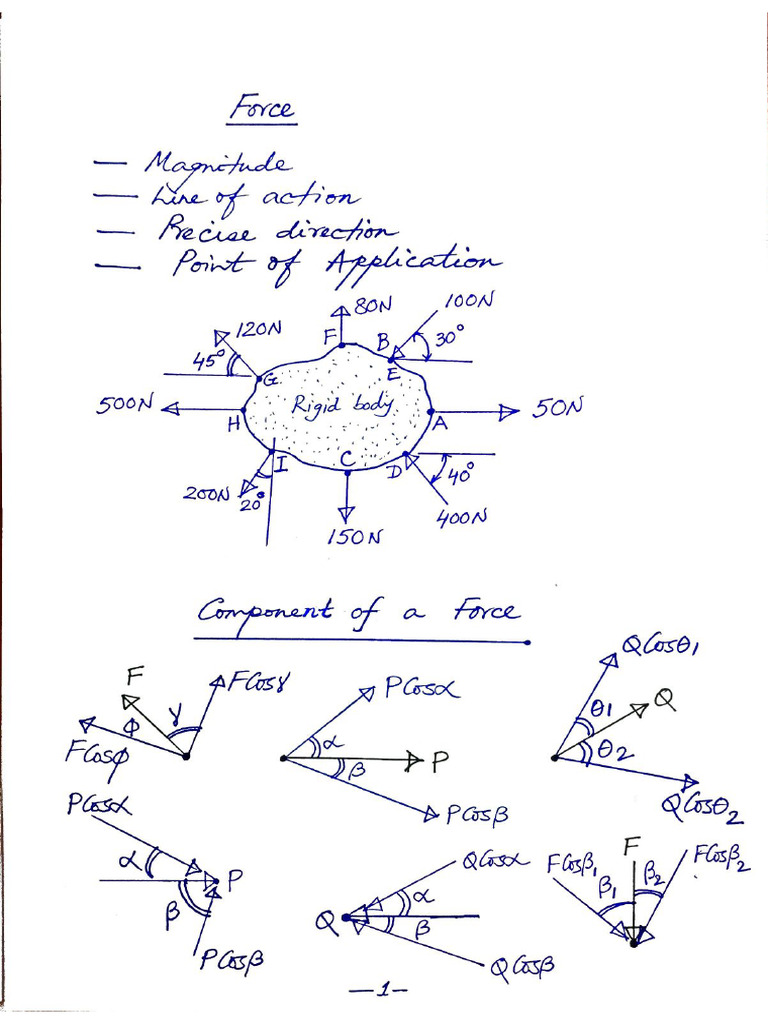 Force
— Magnitude
— Line of action
— Precise direction
— Point of Application
80N
100N
120N
F
B
30°
45°
E
G
500N
Rigid body
50N
H
A
I
C
D
40°
200N
20°
400N
150N
Component of a Force
QCosθ1
F
FCosγ
PCosα
γ
θ1
Q
ϕ
α
θ2
FCosϕ
P
β
PCosα
PCosβ
QCosθ2
QCosα
F
FCosβ1
FCosβ2
α
P
β1
β2
α
β
Q
β
PCosβ
QCosβ
—1—